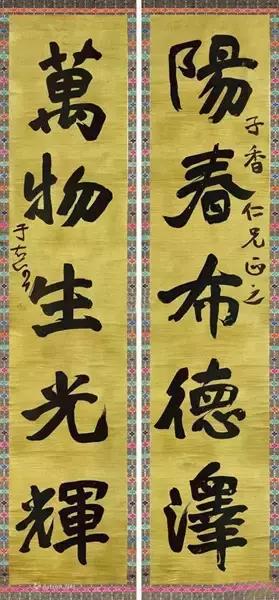 陽春布德澤
子香仁兄正之
萬物生光輝
于右任